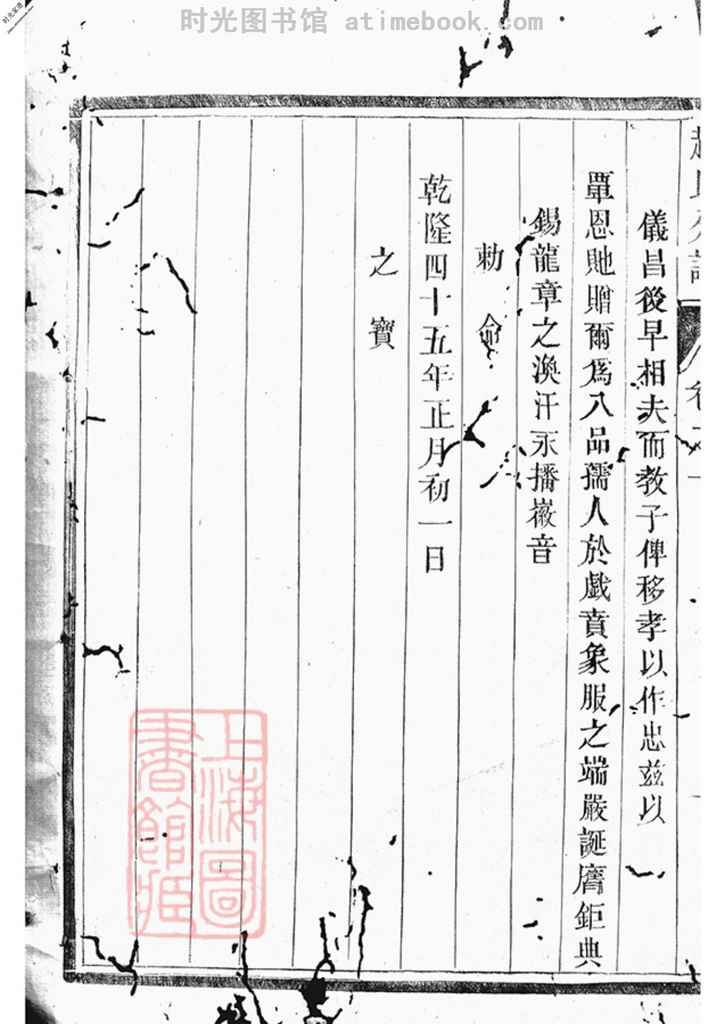 时光图书馆 atimebook.com
儀昌後早相夫而教子俾移孝以作忠兹以
覃恩貤贈爾爲八品孺人於戲賁象服之端嚴誕膺鉅典
錫龍章之渙汗永播徽音
勅命
乾隆四十五年正月初一日
之寶
上海圖
書館